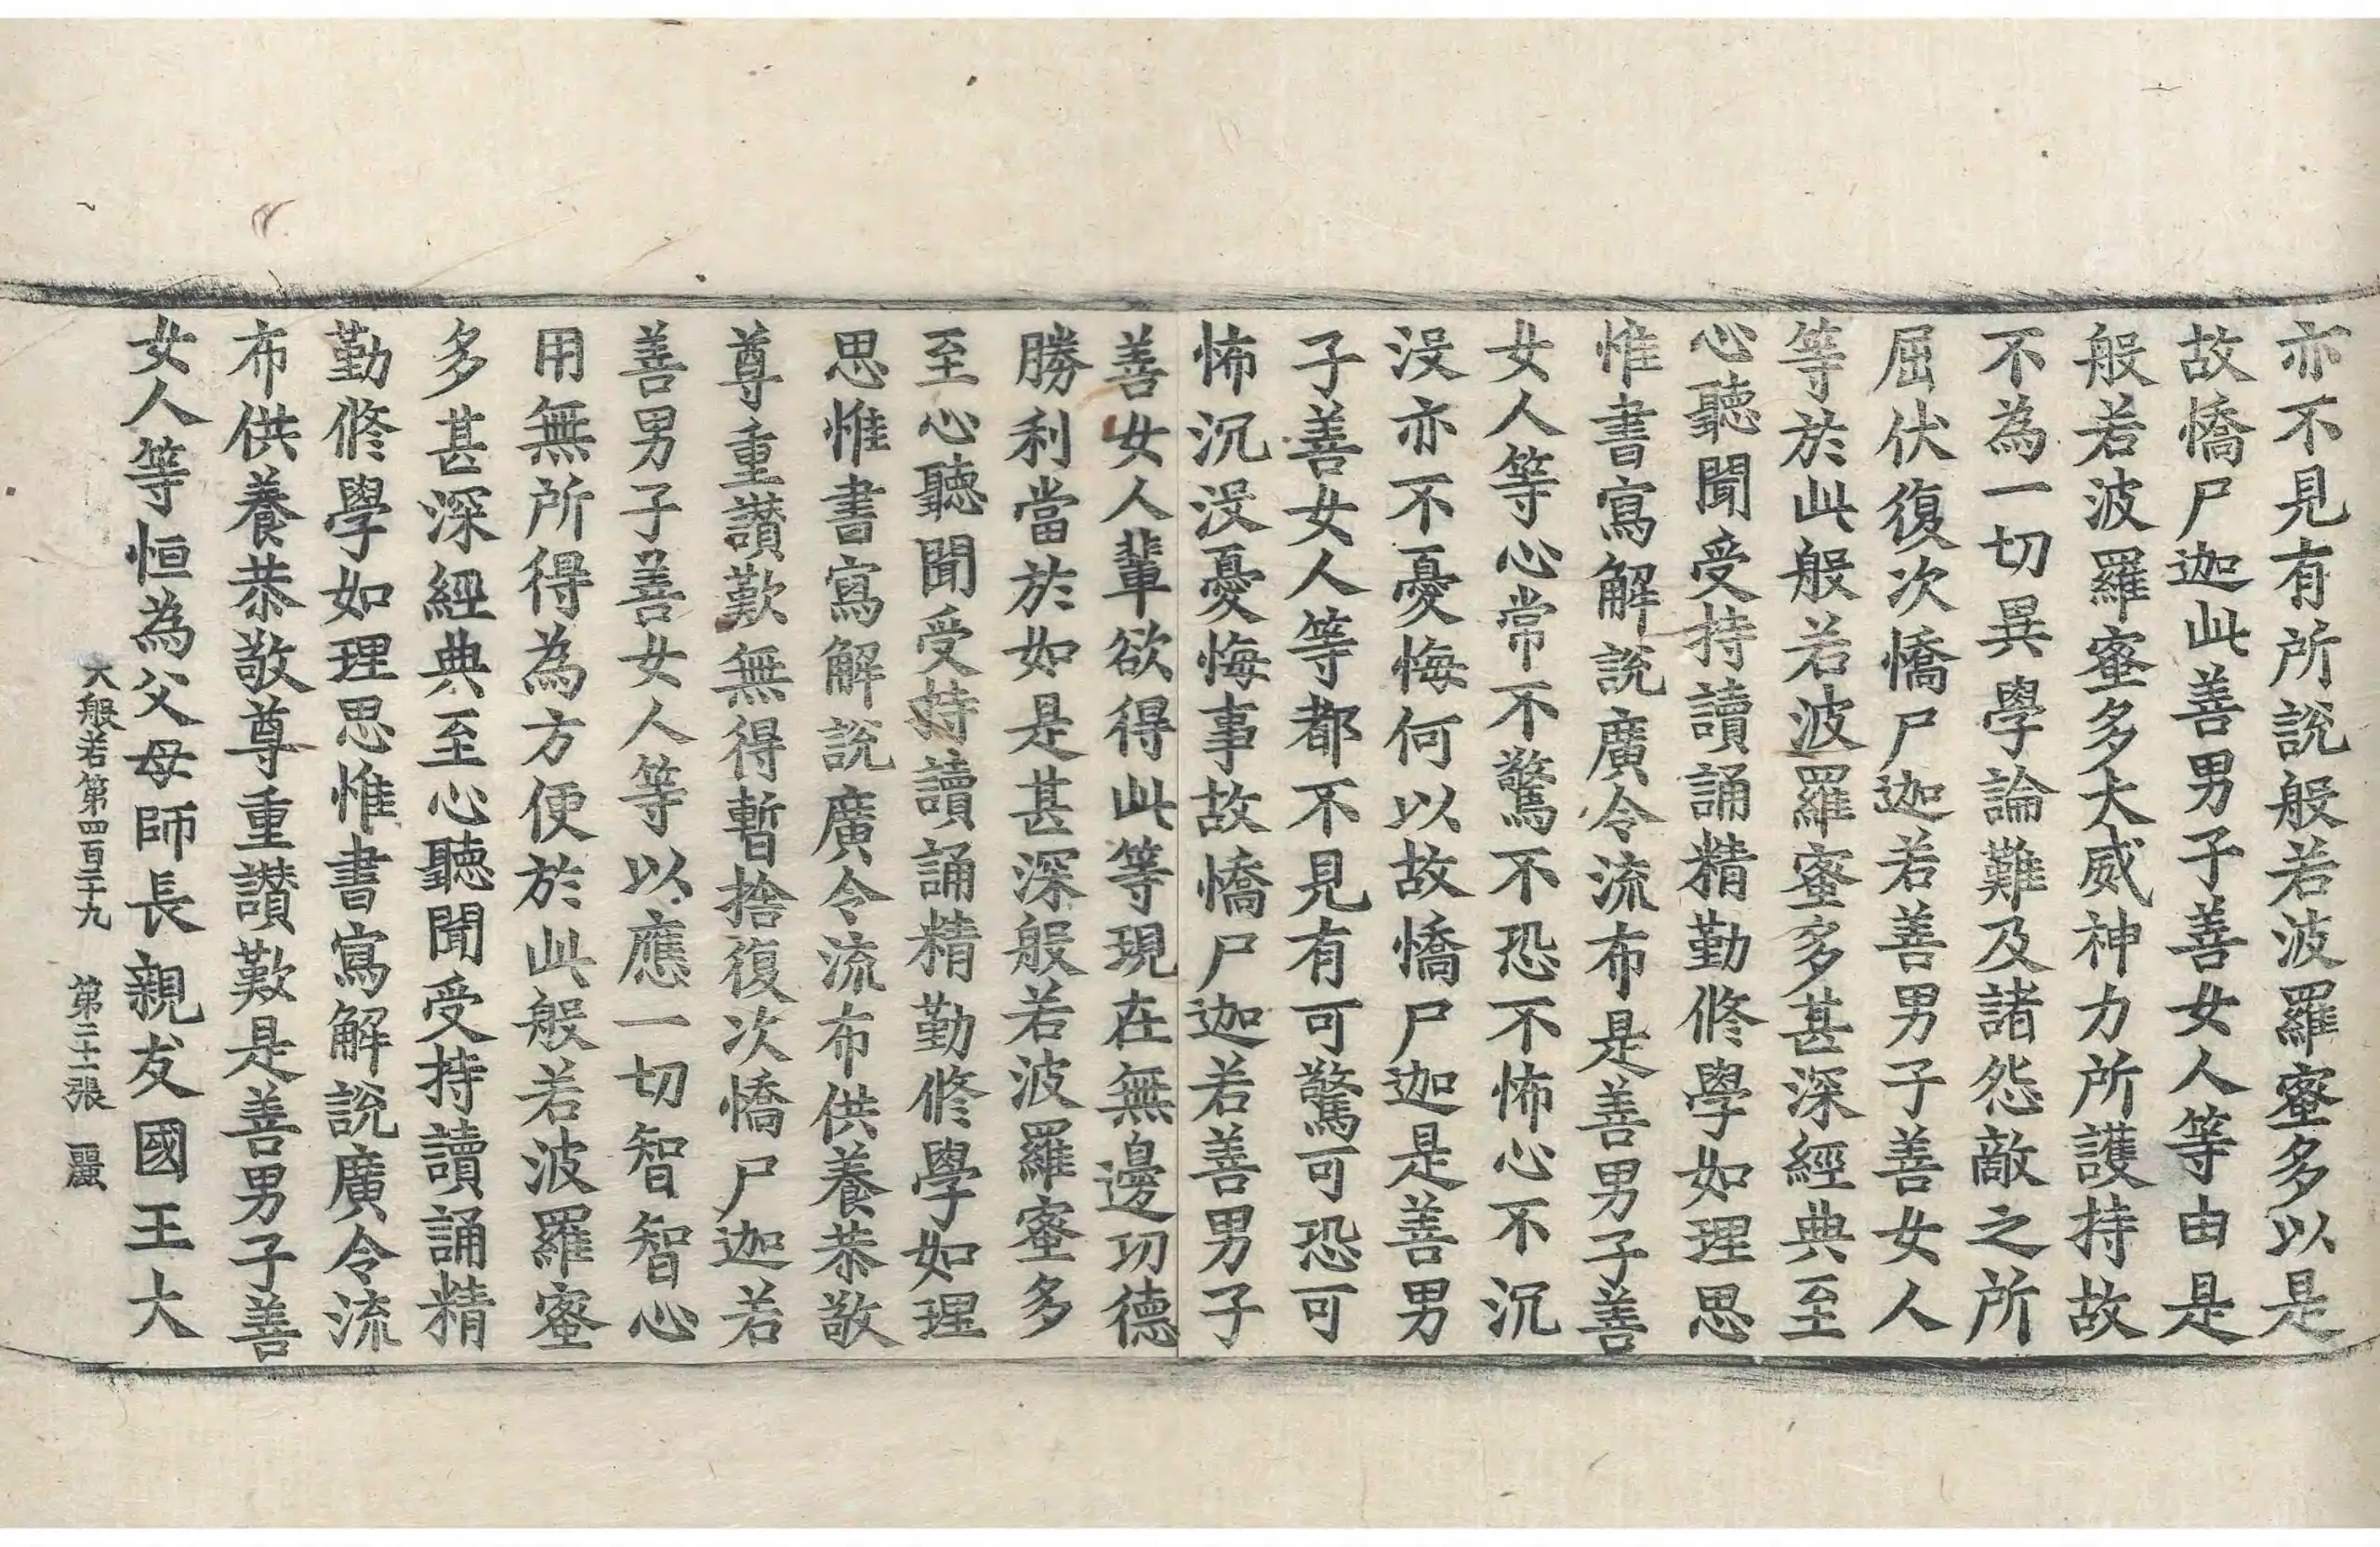 亦不見有所說般若波羅蜜多以是
故憍尸迦此善男子善女人等由是
般若波羅蜜多大威神力所護持故
不為一切異學論難及諸怨敵之所
屈伏復次憍尸迦若善男子善女人
等於此般若波羅蜜多甚深經典至
心聽聞受持讀誦精勤修學如理思
惟書寫解說廣令流布是善男子善
女人等心常不驚不恐不怖心不沉
沒亦不憂悔何以故憍尸迦是善男
子善女人等都不見有可驚可恐可
怖沉沒憂悔事故憍尸迦若善男子
善女人輩欲得此等現在無邊功德
勝利當於如是甚深般若波羅蜜多
至心聽聞受持讀誦精勤修學如理
思惟書寫解說廣令流布供養恭敬
尊重讚歎無得暫捨復次憍尸迦若
善男子善女人等以應一切智智心
用無所得為方便於此般若波羅蜜
多甚深經典至心聽聞受持讀誦精
勤修學如理思惟書寫解說廣令流
布供養恭敬尊重讚歎是善男子善
女人等恒為父母師長親友國王大
大般若第四百二十九 第二十一張 麗